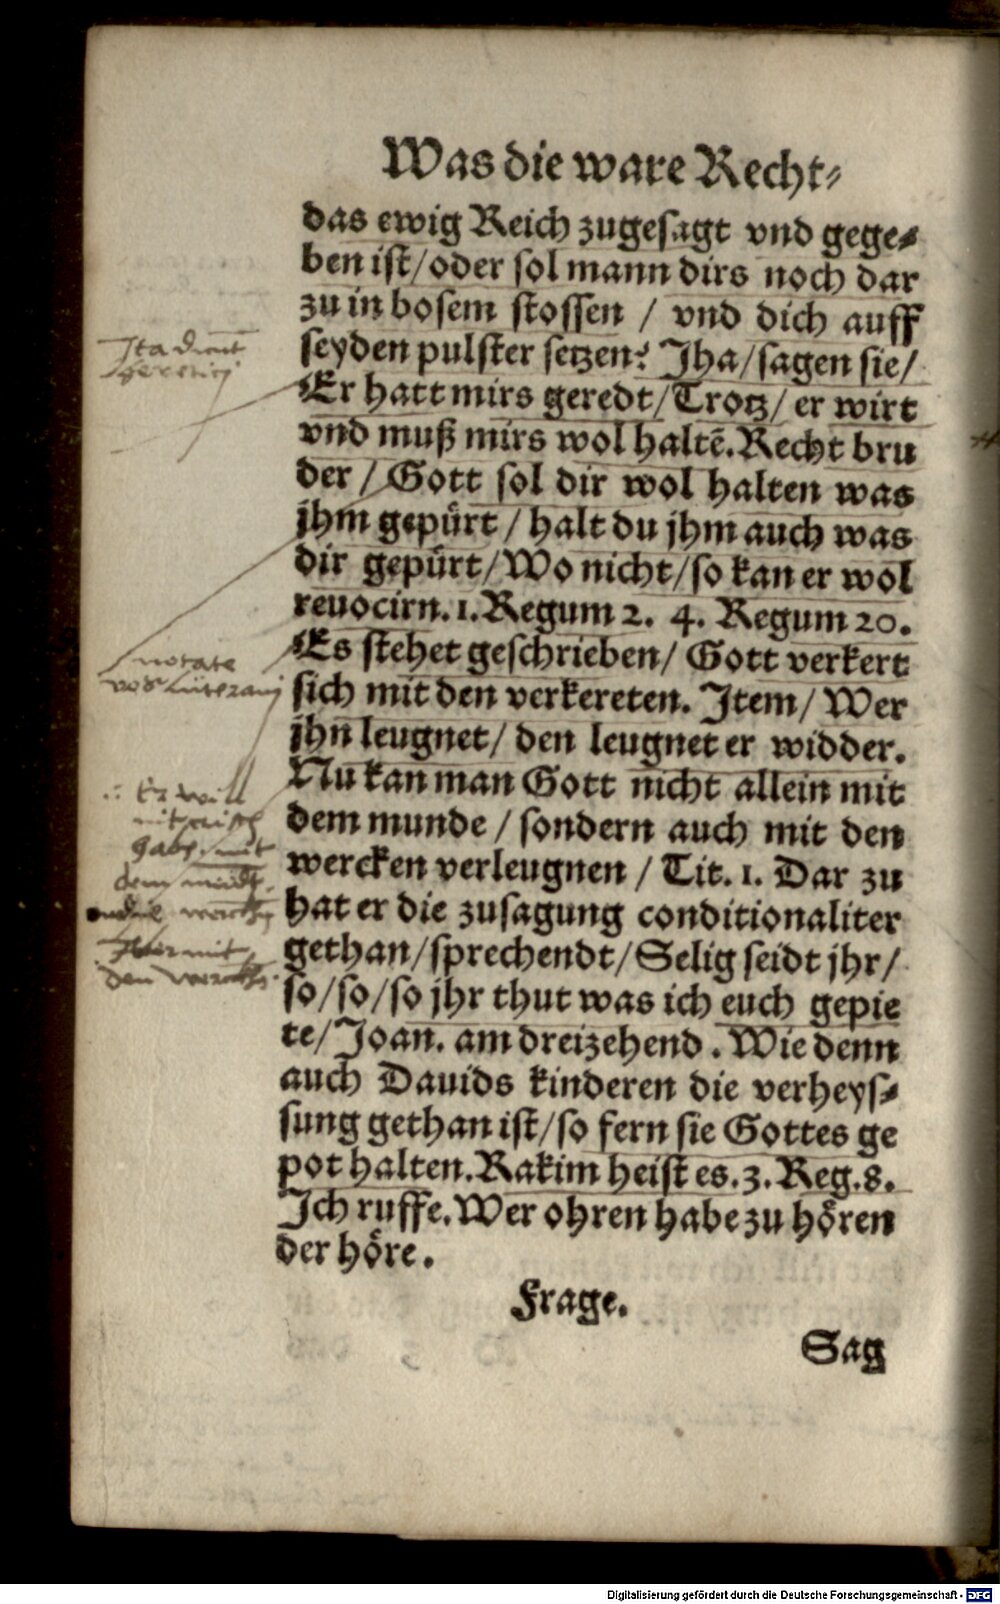 Was die ware Recht⸗
das ewig Reich zugesagt vnd gege⸗
ben ist/oder sol mann dirs noch dar
zu in bosem stossen / vnd dich auff
seyden pulster setzen? Jha/sagen sie/
Er hatt mirs geredt/Trotz/ er wirt
vnd muß mirs wol haltē. Recht bru
der / Gott sol dir wol halten was
jhm gepürt / halt du jhm auch was
dir gepürt/Wo nicht/so kan er wol
reuocirn. 1. Regum 2. 4. Regum 20.
Es stehet geschrieben/ Gott verkert
sich mit den verkereten. Item/ Wer
jhn leugnet/ den leugnet er widder.
Nu kan man Gott nicht allein mit
dem munde / sondern auch mit den
wercken verleugnen / Tit. 1. Dar zu
hat er die zusagung conditionaliter
gethan/sprechendt/Selig seidt jhr/
so/so/so jhr thut was ich euch gepie
te/Joan. am dreizehend. Wie denn
auch Dauids kinderen die verheys⸗
sung gethan ist/so fern sie Gottes ge
pot halten. Rakim heist es. 3. Reg. 8.
Ich ruffe. Wer ohren habe zu hören
der höre.
Frage.
Sag
Ita dicunt
heretici
notate
vos Luterani
Er will
dem
den werckhē
Digitalisierung gefördert durch die Deutsche Forschungsgemeinschaft - DFG